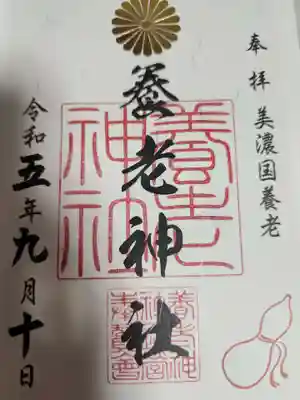 奉拝 美濃国養老
養老神社
令和五年九月十日
養老神社